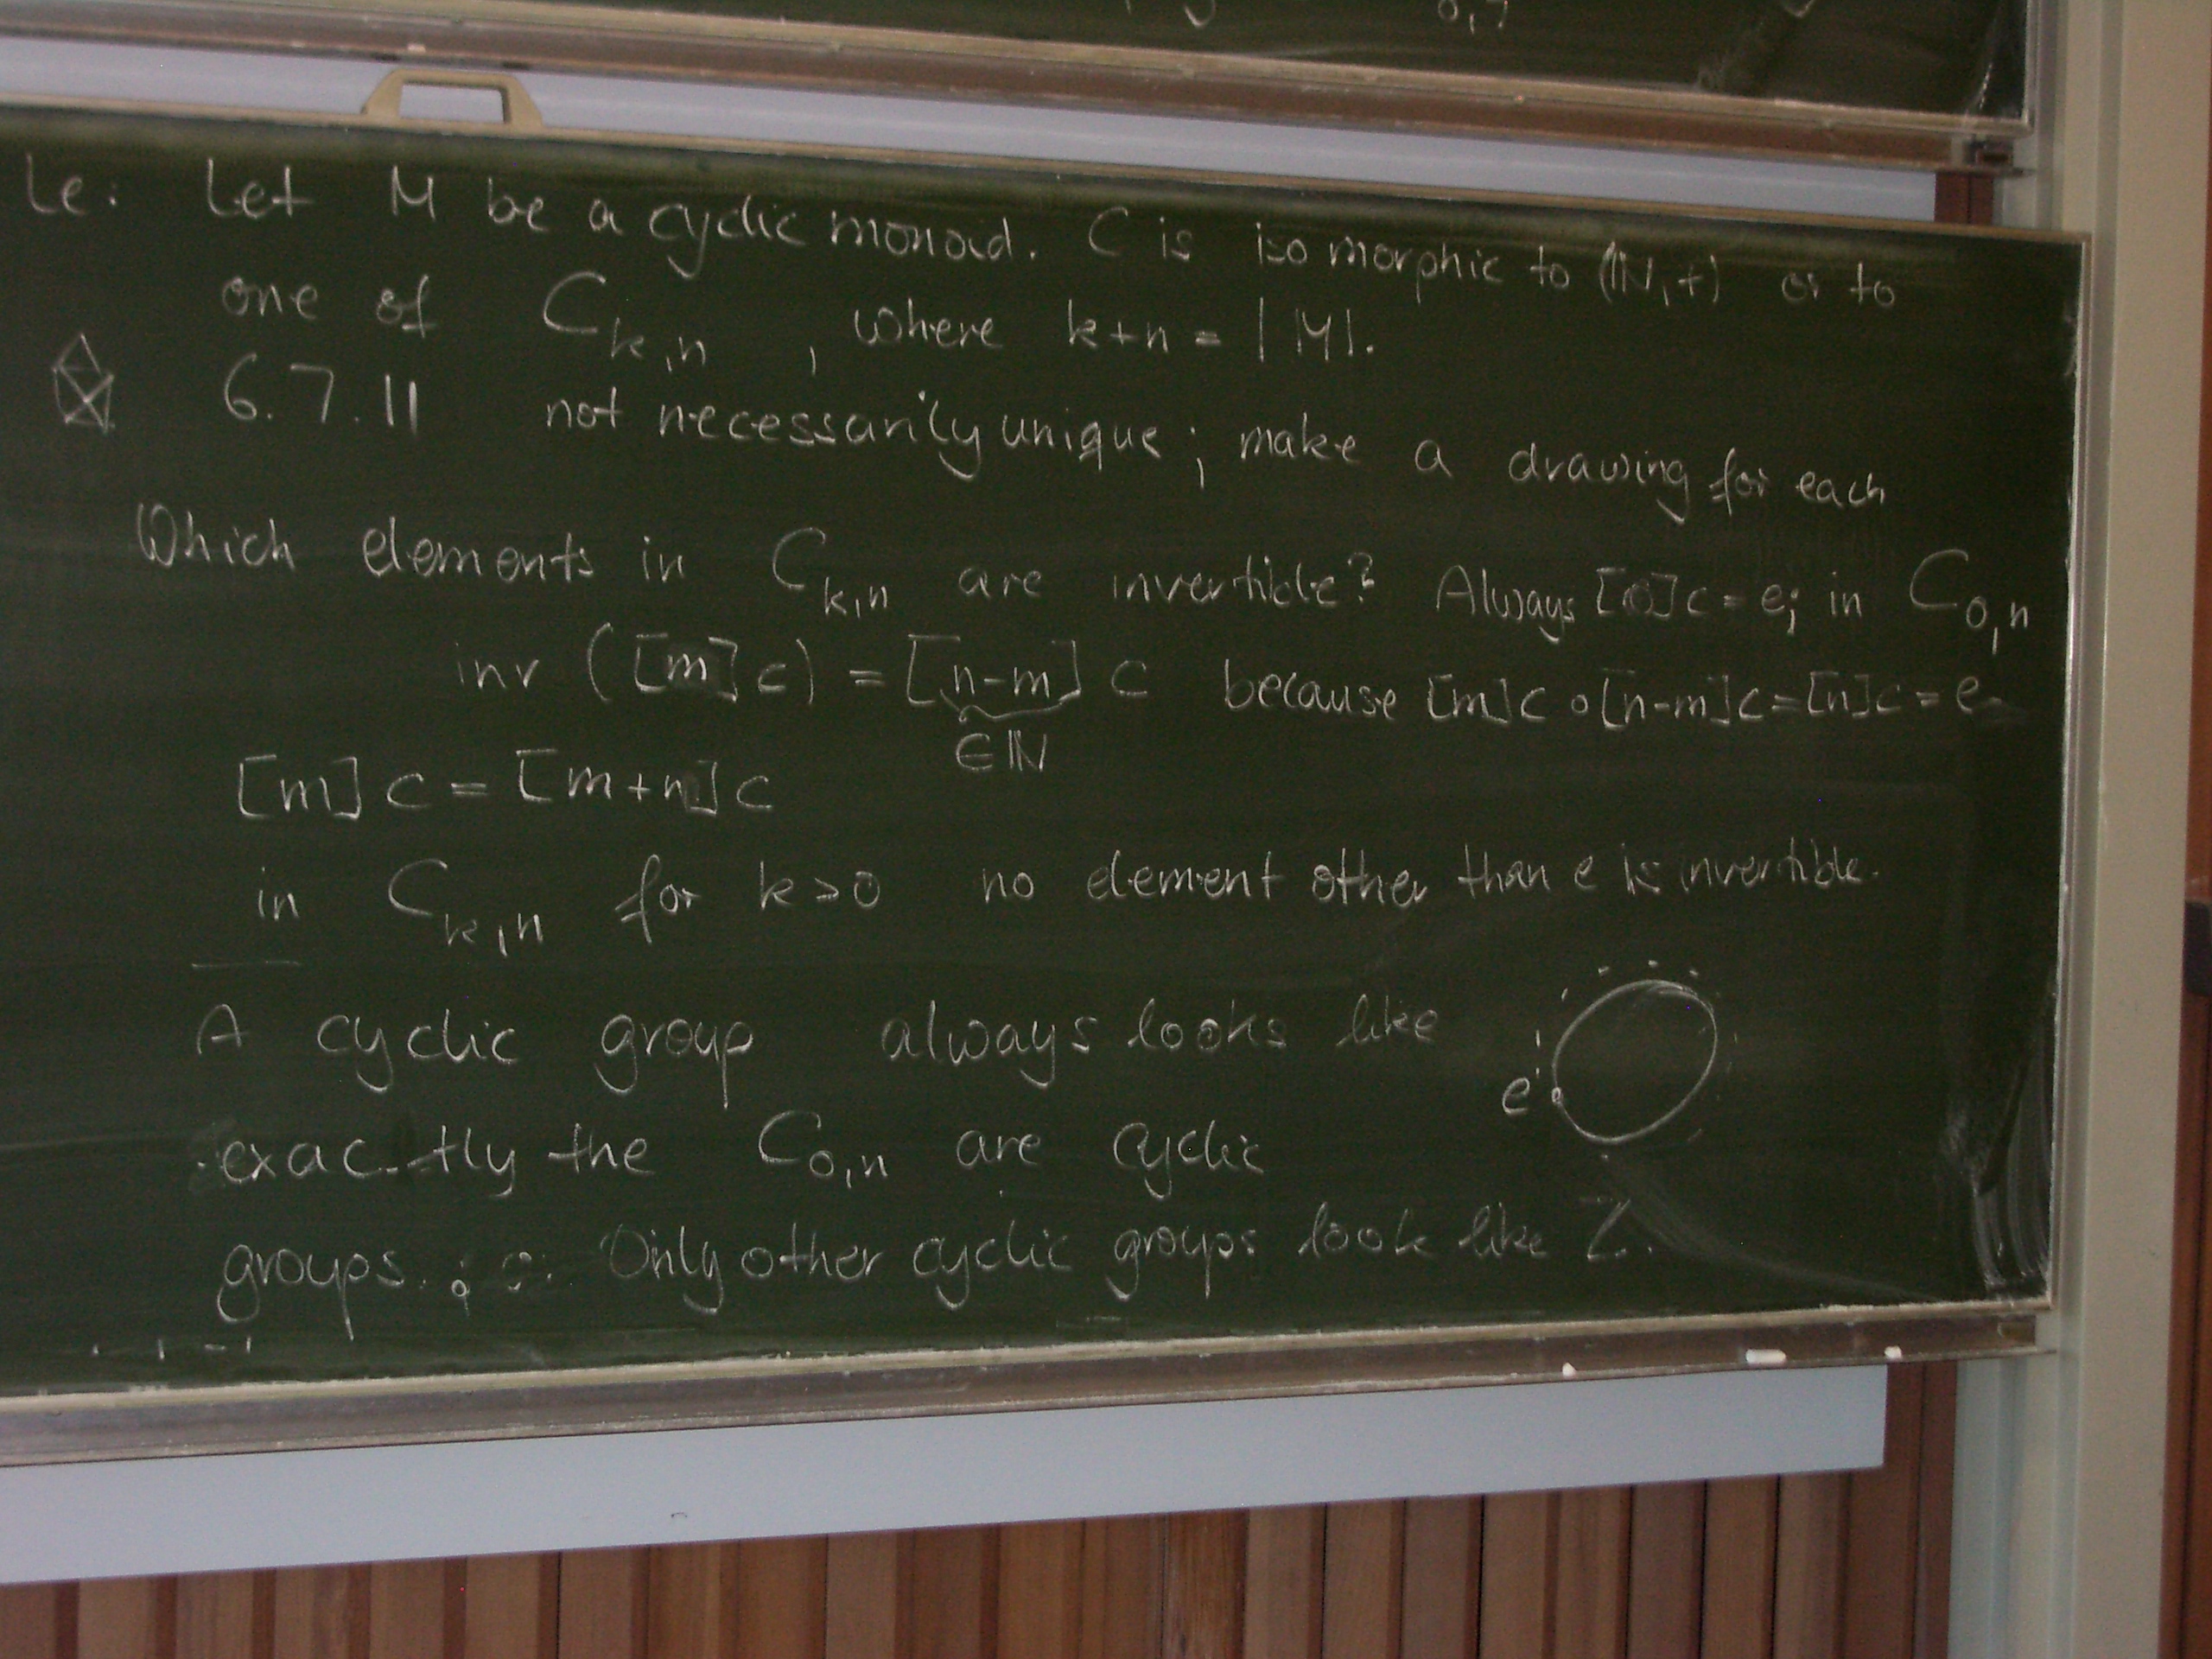 Le: Let M be a cyclic monoid. C is isomorphic to (ℕ,+) or to
one of C_{k,n}, where k+n = |M|.
6.7.11 not necessarily unique; make a drawing for each
Which elements in C_{k,n} are invertible? Always [0]c = e; in C_{0,n}
inv ([m]c) = [n-m] c because [m]c ∘ [n-m]c = [n]c = e
∈ ℕ
[m] c = [m+n] c
in C_{k,n} for k>0 no element other than e is invertible.
A cyclic group always looks like
e
exactly the C_{0,n} are cyclic
groups. Only other cyclic groups look like ℤ.